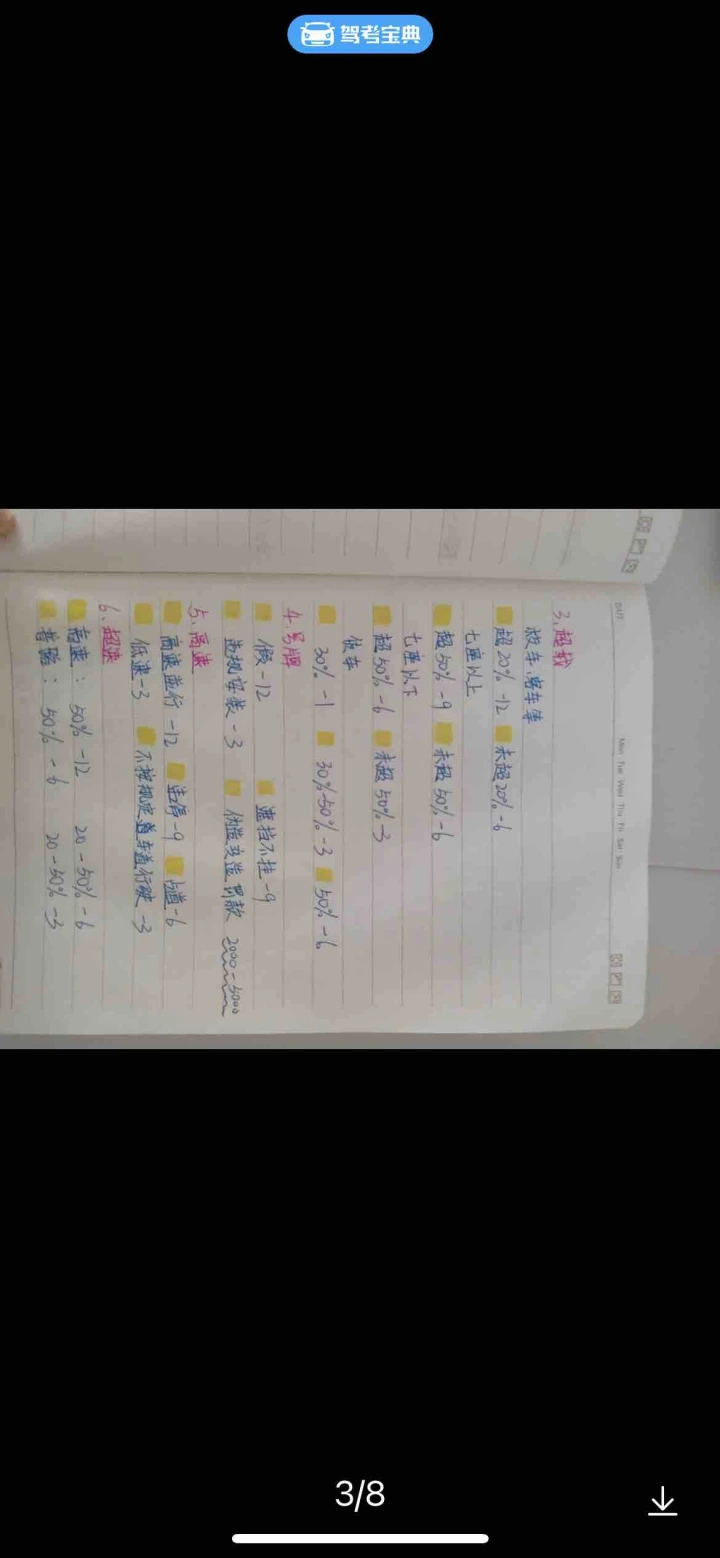 驾考宝典
DATE
Mon Tue Wed Thu Fri Sat Sun
3.超载
校车、客车等
超20% -12 未超20% -6
七座以上
超50% -9 未超50% -6
七座以下
超50% -6 未超50% -3
货车
30% -1 30%-50% -3 50% -6
4.号牌
假 -12 遮挡不挂 -9
违规安装 -3 伪造变造 罚款 2000-5000
5.高速
高速逆行 -12 违停 -9 占道 -6
低速 -3 不按规定车道行驶 -3
6.超速
高速: 50% -12 20-50% -6
普路: 50% -6 20-50% -3
3/8